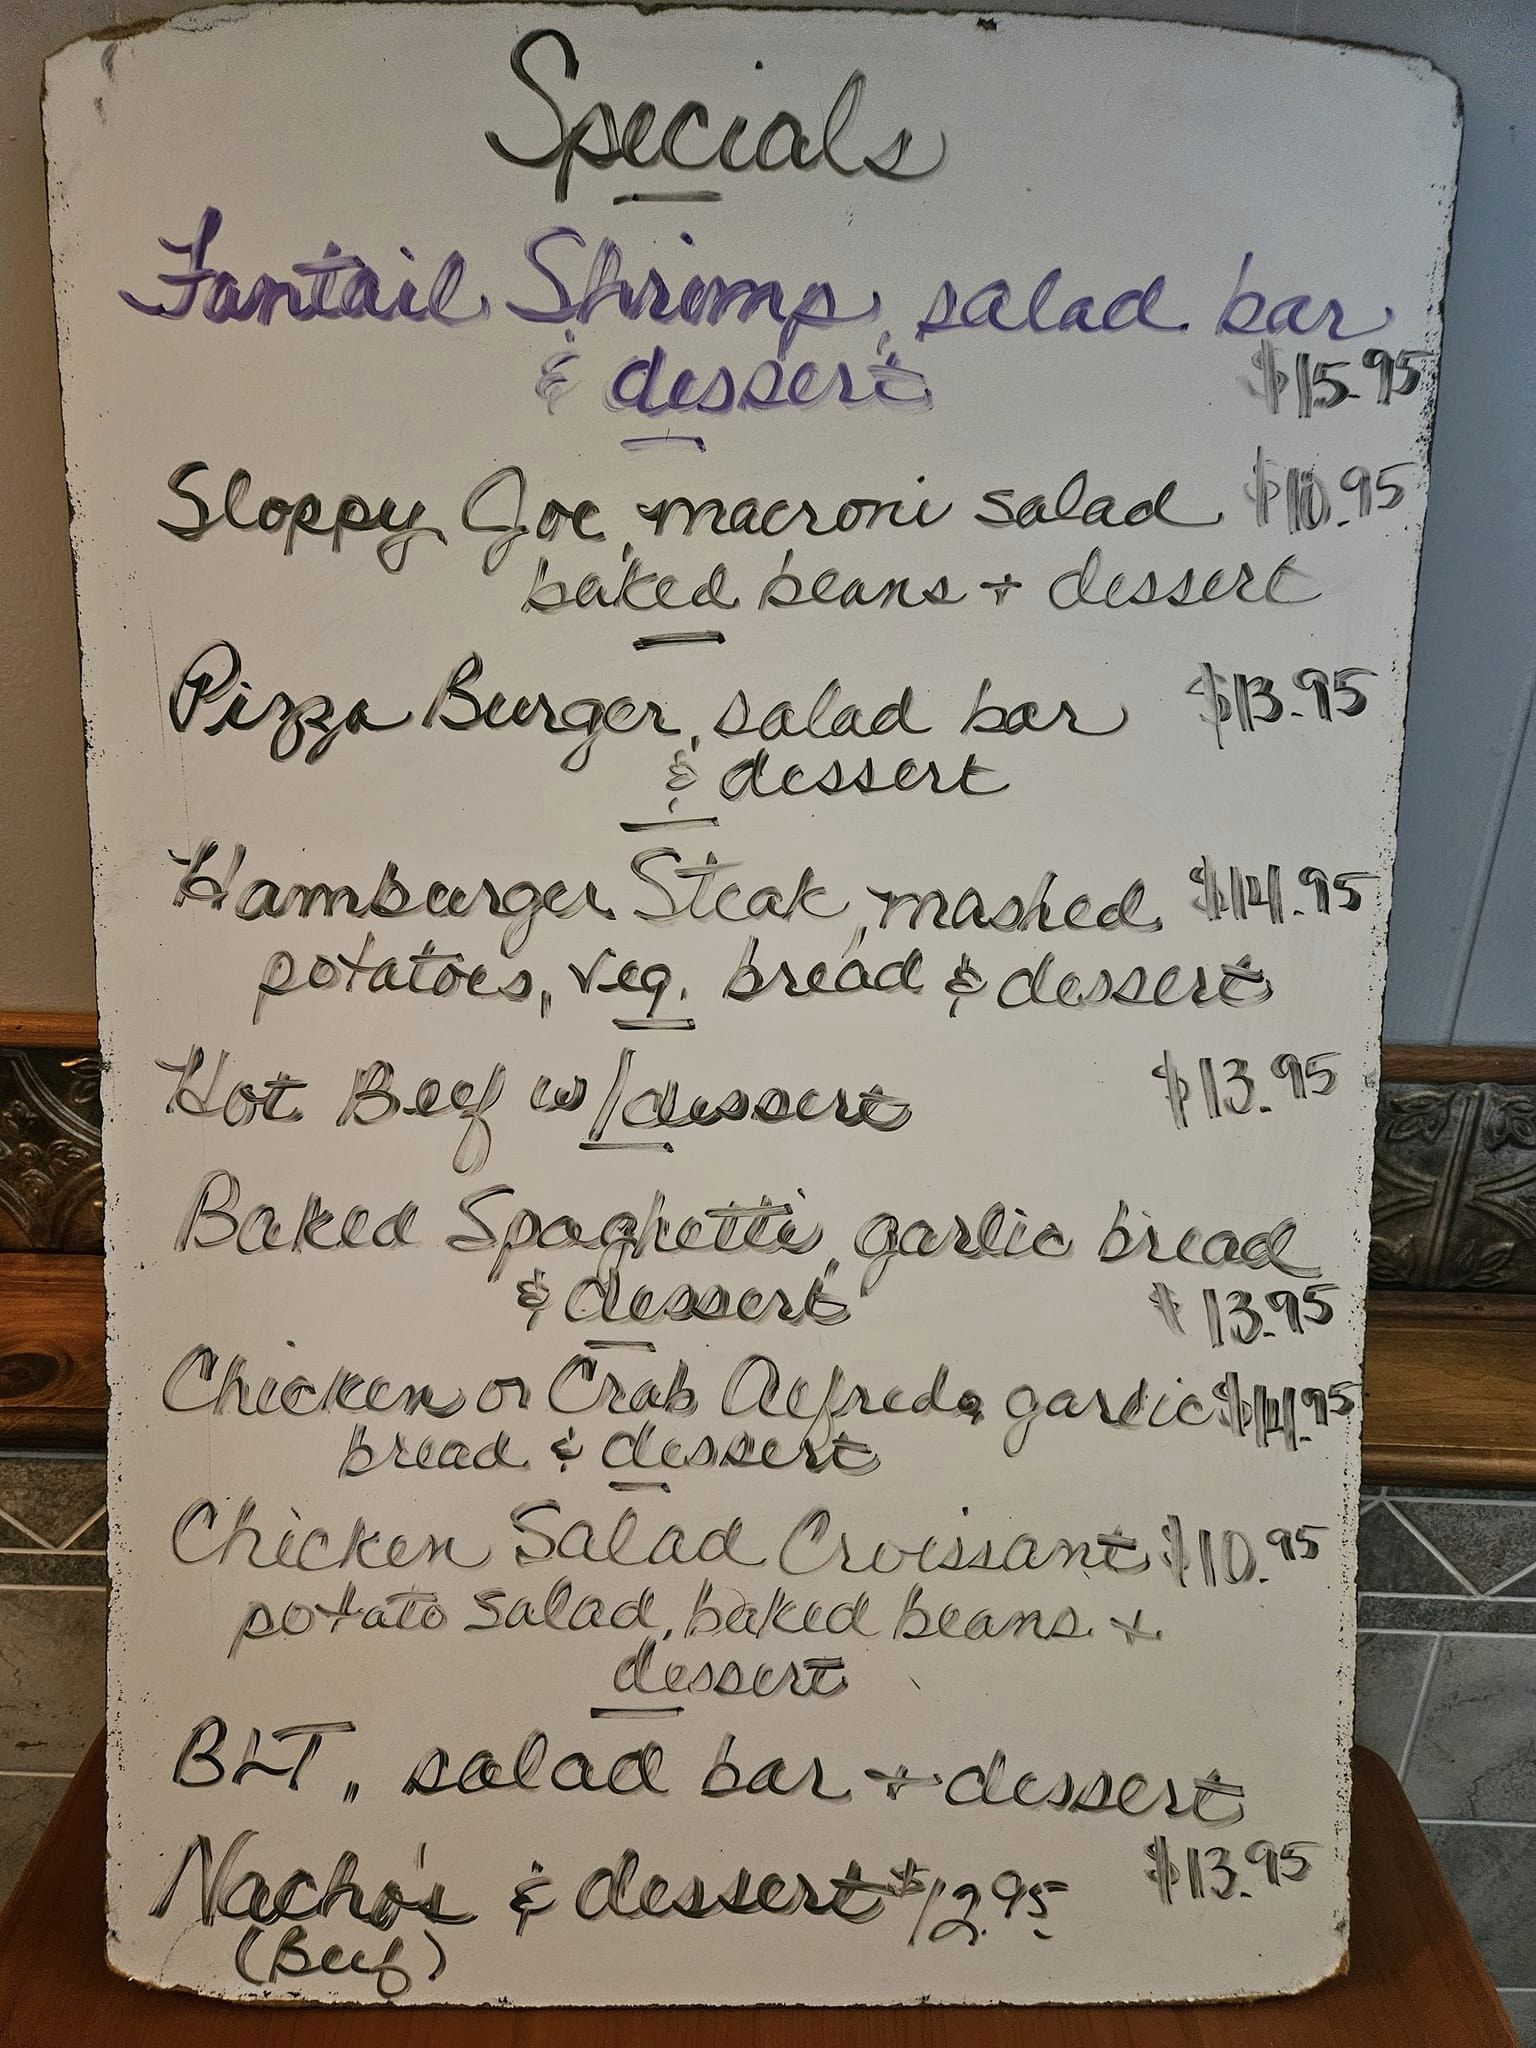 Specials
Fantail Shrimp, salad bar
& dessert $15.95
Sloppy Joe, macroni salad $10.95
baked beans + dessert
Pizza Burger, salad bar $13.95
& dessert
Hamburger Steak, mashed $14.95
potatoes, veg. bread & dessert
Hot Beef w/dessert $13.95
Baked Spaghetti, garlic bread
& dessert $13.95
Chicken or Crab Alfredo, garlic $14.95
bread & dessert
Chicken Salad Croissant $10.95
potato salad, baked beans +
dessert
BLT, salad bar + dessert
$13.95
Nacho's & dessert $12.95
(Beef)